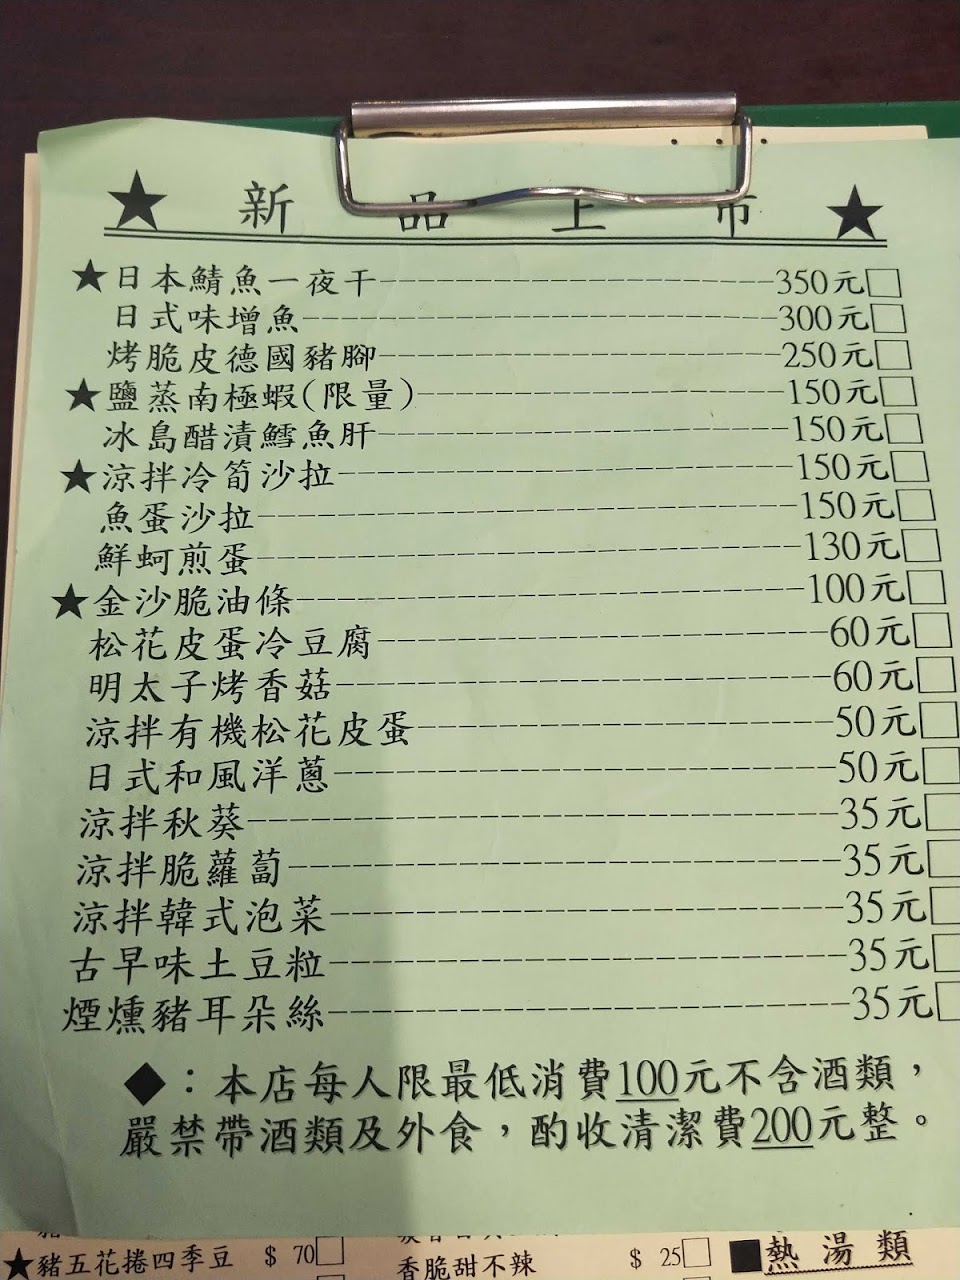 ★ 新品上市 ★
★日本鯖魚一夜干350元□
日式味增魚300元□
烤脆皮德國豬腳250元□
★鹽蒸南極蝦(限量)150元□
冰島醋漬鱈魚肝150元□
★涼拌冷筍沙拉150元□
魚蛋沙拉150元□
鮮蚵煎蛋130元□
★金沙脆油條100元□
松花皮蛋冷豆腐60元□
明太子烤香菇60元□
涼拌有機松花皮蛋50元□
日式和風洋蔥50元□
涼拌秋葵35元□
涼拌脆蘿蔔35元□
涼拌韓式泡菜35元□
古早味土豆粒35元□
煙燻豬耳朵絲35元□
◆：本店每人限最低消費100元不含酒類，
嚴禁帶酒類及外食，酌收清潔費200元整。
★豬五花捲四季豆 $ 70□ 香脆甜不辣 $ 25□ ■熱湯類